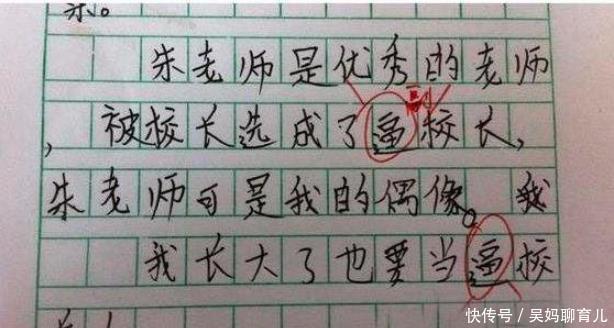 朱老师是优秀的老师
副
，被校长选成了逼校长，
朱老师可是我的偶像。我
我长大了也要当逼校
快传号/吴妈聊育儿